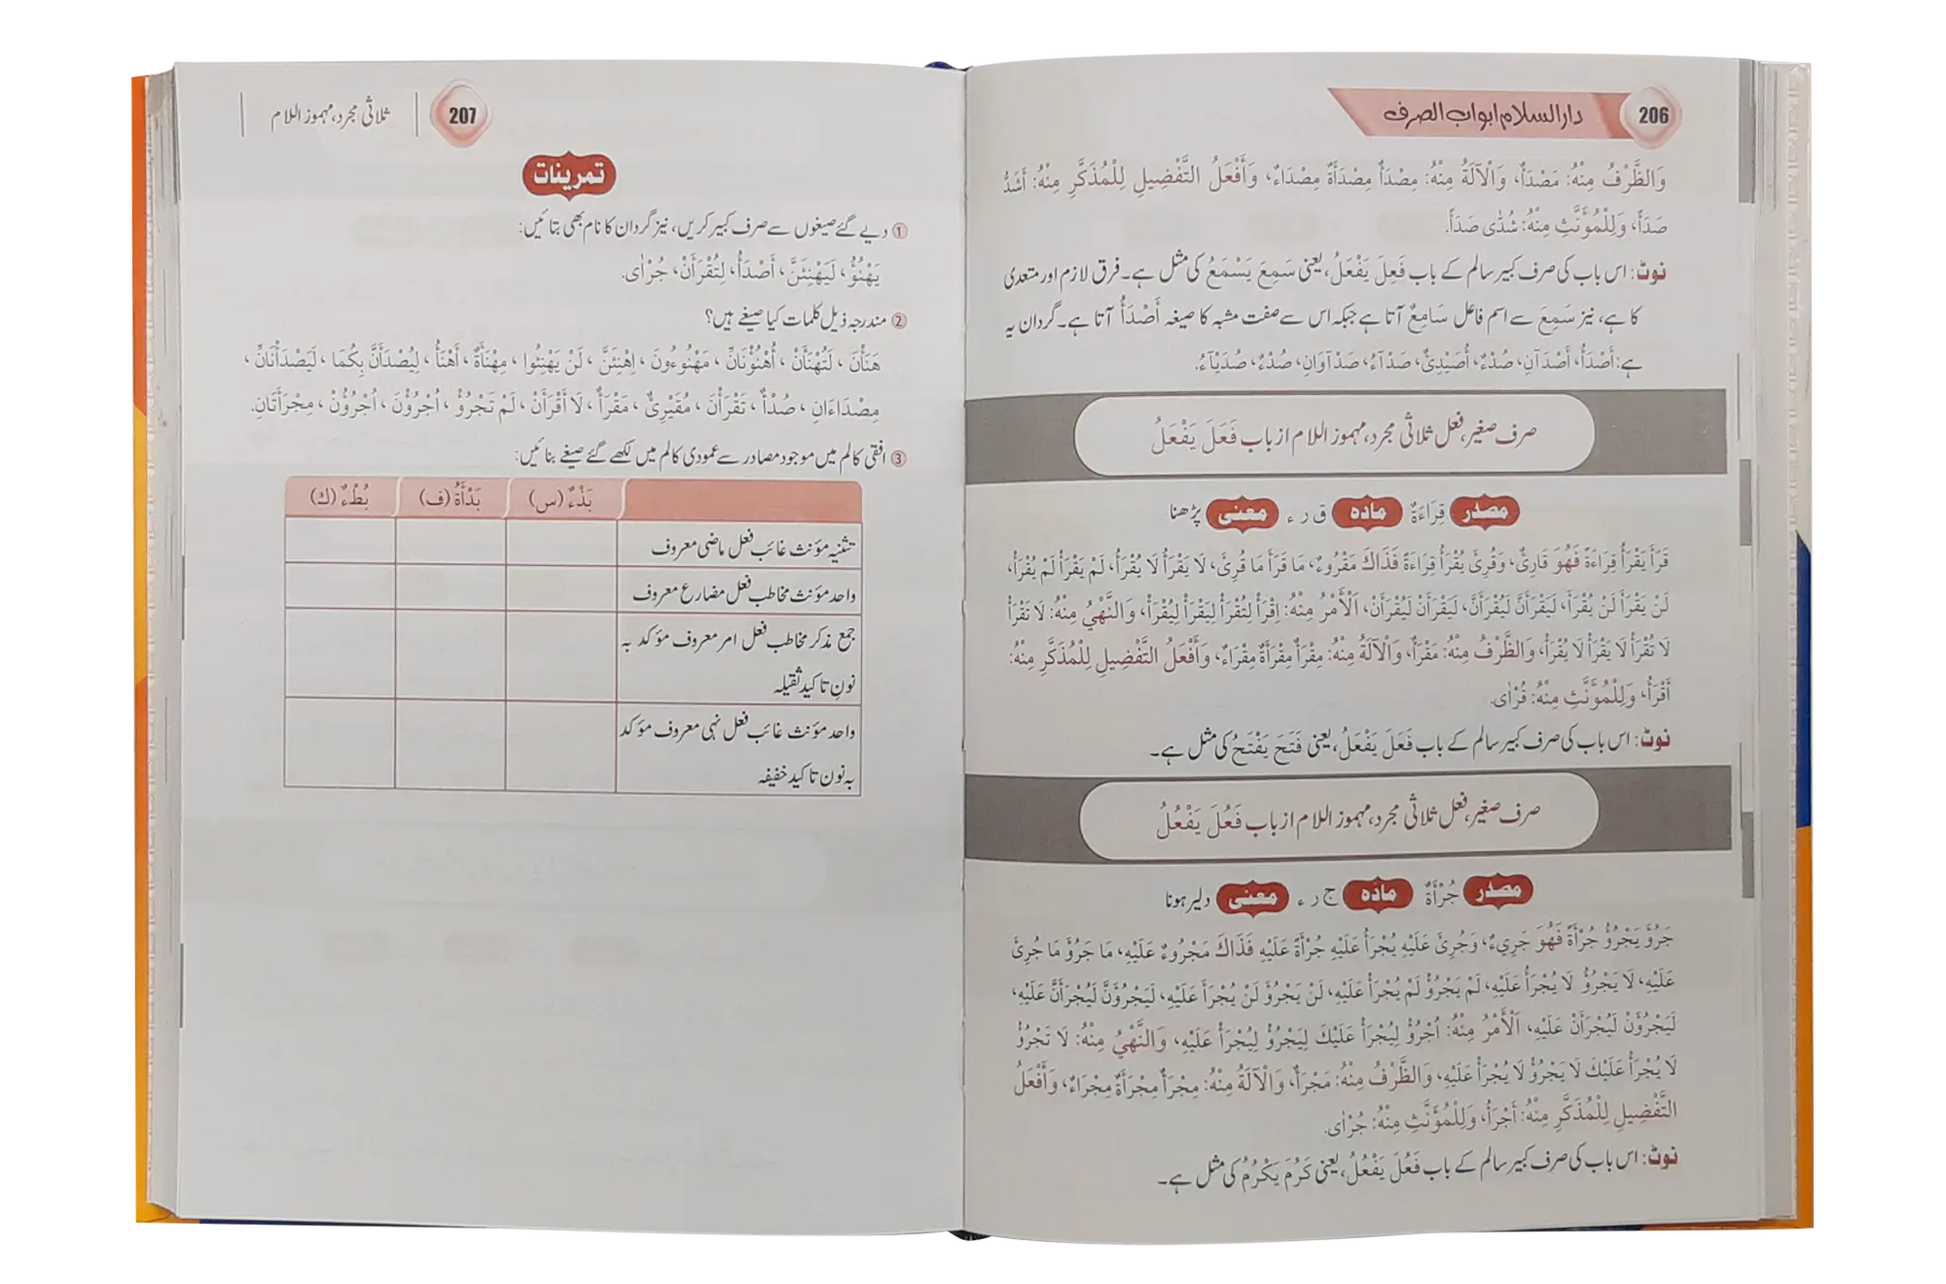 206
دارالسلام ابواب الصرف
وَالظَّرْفُ مِنْهُ: مَصْدَأٌ، وَالْآلَةُ مِنْهُ: مِصْدَأٌ مِصْدَأَةٌ مِصْدَاءٌ، وَأَفْعَلُ التَّفْضِيلِ لِلْمُذَكَّرِ مِنْهُ: أَشَدُّ
صَدَأً، وَلِلْمُؤَنَّثِ مِنْهُ: شُدّٰى صَدَأً.
نوٹ: اس باب کی صرف کبیر سالم کے باب فَعِلَ يَفْعَلُ، یعنی سَمِعَ يَسْمَعُ کی مثل ہے۔ فرق لازم اور متعدی
کا ہے، نیز سَمِعَ سے اسم فاعل سَامِعٌ آتا ہے جبکہ اس سے صفت مشبہ کا صیغہ أَصْدَأُ آتا ہے۔ گردان یہ
ہے: أَصْدَأُ، أَصْدَآنِ، صُدْءٌ، أُصَيْدِئٌ، صَدْآءُ، صَدْآوَانِ، صُدْءٌ، صُدَيْآءُ.
صرف صغیر، فعل ثلاثی مجرد، مہموز اللام از باب فَعَلَ يَفْعَلُ
مصدر قِرَاءَةٌ مادہ ق ر ء معنی پڑھنا
قَرَأَ يَقْرَأُ قِرَاءَةً فَهُوَ قَارِئٌ، وَقُرِئَ يُقْرَأُ قِرَاءَةً فَذَاكَ مَقْرُوءٌ، مَا قَرَأَ مَا قُرِئَ، لَا يَقْرَأُ لَا يُقْرَأُ، لَمْ يَقْرَأْ لَمْ يُقْرَأْ،
لَنْ يَقْرَأَ لَنْ يُقْرَأَ، لَيَقْرَأَنَّ لَيُقْرَأَنَّ، لَيَقْرَأَنْ لَيُقْرَأَنْ، اَلْأَمْرُ مِنْهُ: اِقْرَأْ لِتُقْرَأْ لِيَقْرَأْ لِيُقْرَأْ، وَالنَّهْيُ مِنْهُ: لَا تَقْرَأْ
لَا تُقْرَأْ لَا يَقْرَأْ لَا يُقْرَأْ، وَالظَّرْفُ مِنْهُ: مَقْرَأٌ، وَالْآلَةُ مِنْهُ: مِقْرَأٌ مِقْرَأَةٌ مِقْرَاءٌ، وَأَفْعَلُ التَّفْضِيلِ لِلْمُذَكَّرِ مِنْهُ:
أَقْرَأُ، وَلِلْمُؤَنَّثِ مِنْهُ: قُرْأى.
نوٹ: اس باب کی صرف کبیر سالم کے باب فَعَلَ يَفْعَلُ، یعنی فَتَحَ يَفْتَحُ کی مثل ہے۔
صرف صغیر، فعل ثلاثی مجرد، مہموز اللام از باب فَعُلَ يَفْعُلُ
مصدر جُرْأَةٌ مادّہ ج ر ء معنی دلیر ہونا
جَرُؤَ يَجْرُؤُ جُرْأَةً فَهُوَ جَرِيءٌ، وَجُرِئَ عَلَيْهِ يُجْرَأُ عَلَيْهِ جُرْأَةً عَلَيْهِ فَذَاكَ مَجْرُوءٌ عَلَيْهِ، مَا جَرُؤَ مَا جُرِئَ
عَلَيْهِ، لَا يَجْرُؤُ لَا يُجْرَأُ عَلَيْهِ، لَمْ يَجْرُؤْ لَمْ يُجْرَأْ عَلَيْهِ، لَنْ يَجْرُؤَ لَنْ يُجْرَأَ عَلَيْهِ، لَيَجْرُؤَنَّ لَيُجْرَأَنَّ عَلَيْهِ،
لَيَجْرُؤَنْ لَيُجْرَأَنْ عَلَيْهِ، اَلْأَمْرُ مِنْهُ: اُجْرُؤْ لِيُجْرَأْ عَلَيْكَ لِيَجْرُؤْ لِيُجْرَأْ عَلَيْهِ، وَالنَّهْيُ مِنْهُ: لَا تَجْرُؤْ
لَا يُجْرَأْ عَلَيْكَ لَا يَجْرُؤْ لَا يُجْرَأْ عَلَيْهِ، وَالظَّرْفُ مِنْهُ: مَجْرَأٌ، وَالْآلَةُ مِنْهُ: مِجْرَأٌ مِجْرَأَةٌ مِجْرَاءٌ، وَأَفْعَلُ
التَّفْضِيلِ لِلْمُذَكَّرِ مِنْهُ: أَجْرَأُ، وَلِلْمُؤَنَّثِ مِنْهُ: جُرْأى.
نوٹ: اس باب کی صرف کبیر سالم کے باب فَعُلَ يَفْعُلُ، یعنی كَرُمَ يَكْرُمُ کی مثل ہے۔
207
ثلاثی مجرد، مہموز اللام
تمرینات
① دیے گئے صیغوں سے صرف کبیر کریں، نیز گردان کا نام بھی بتائیں:
يَهْنُؤُ، لَيَهْنِئَنَّ، أَصْدَأُ، لِتُقْرَأَنْ، جُرْأى.
② مندرجہ ذیل کلمات کیا صیغے ہیں؟
هَنَأْنَ، لَتُهْنَأَنْ، اُهْنُؤْنَانِّ، مَهْنُوءُونَ، اِهْنِئَنَّ، لَنْ يَهْنِئُوا، مِهْنَأَةٌ، أَهْنَأُ، لِيُصْدَأَنَّ بِكُمَا، لَيَصْدَأْنَانِّ،
مِصْدَاءَانِ، صُدْأٌ، تَقْرَأْنَ، مُقَيْرِئٌ، مَقْرَأٌ، لَا أَقْرَأَنْ، لَمْ تَجْرُؤْ، اُجْرُؤْنَ، اُجْرُؤُنْ، مِجْرَأَتَانِ.
③ افقی کالم میں موجود مصادر سے عمودی کالم میں لکھے گئے صیغے بنائیں:
بَذْءٌ (س) بَدْأَةٌ (ف) بُطْءٌ (ك)
تثنیہ مؤنث غائب فعل ماضی معروف
واحد مؤنث مخاطب فعل مضارع معروف
جمع مذکر مخاطب فعل امر معروف مؤکد بہ
نونِ تاکید ثقیلہ
واحد مؤنث غائب فعل نہی معروف مؤکد
بہ نون تاکید خفیفہ